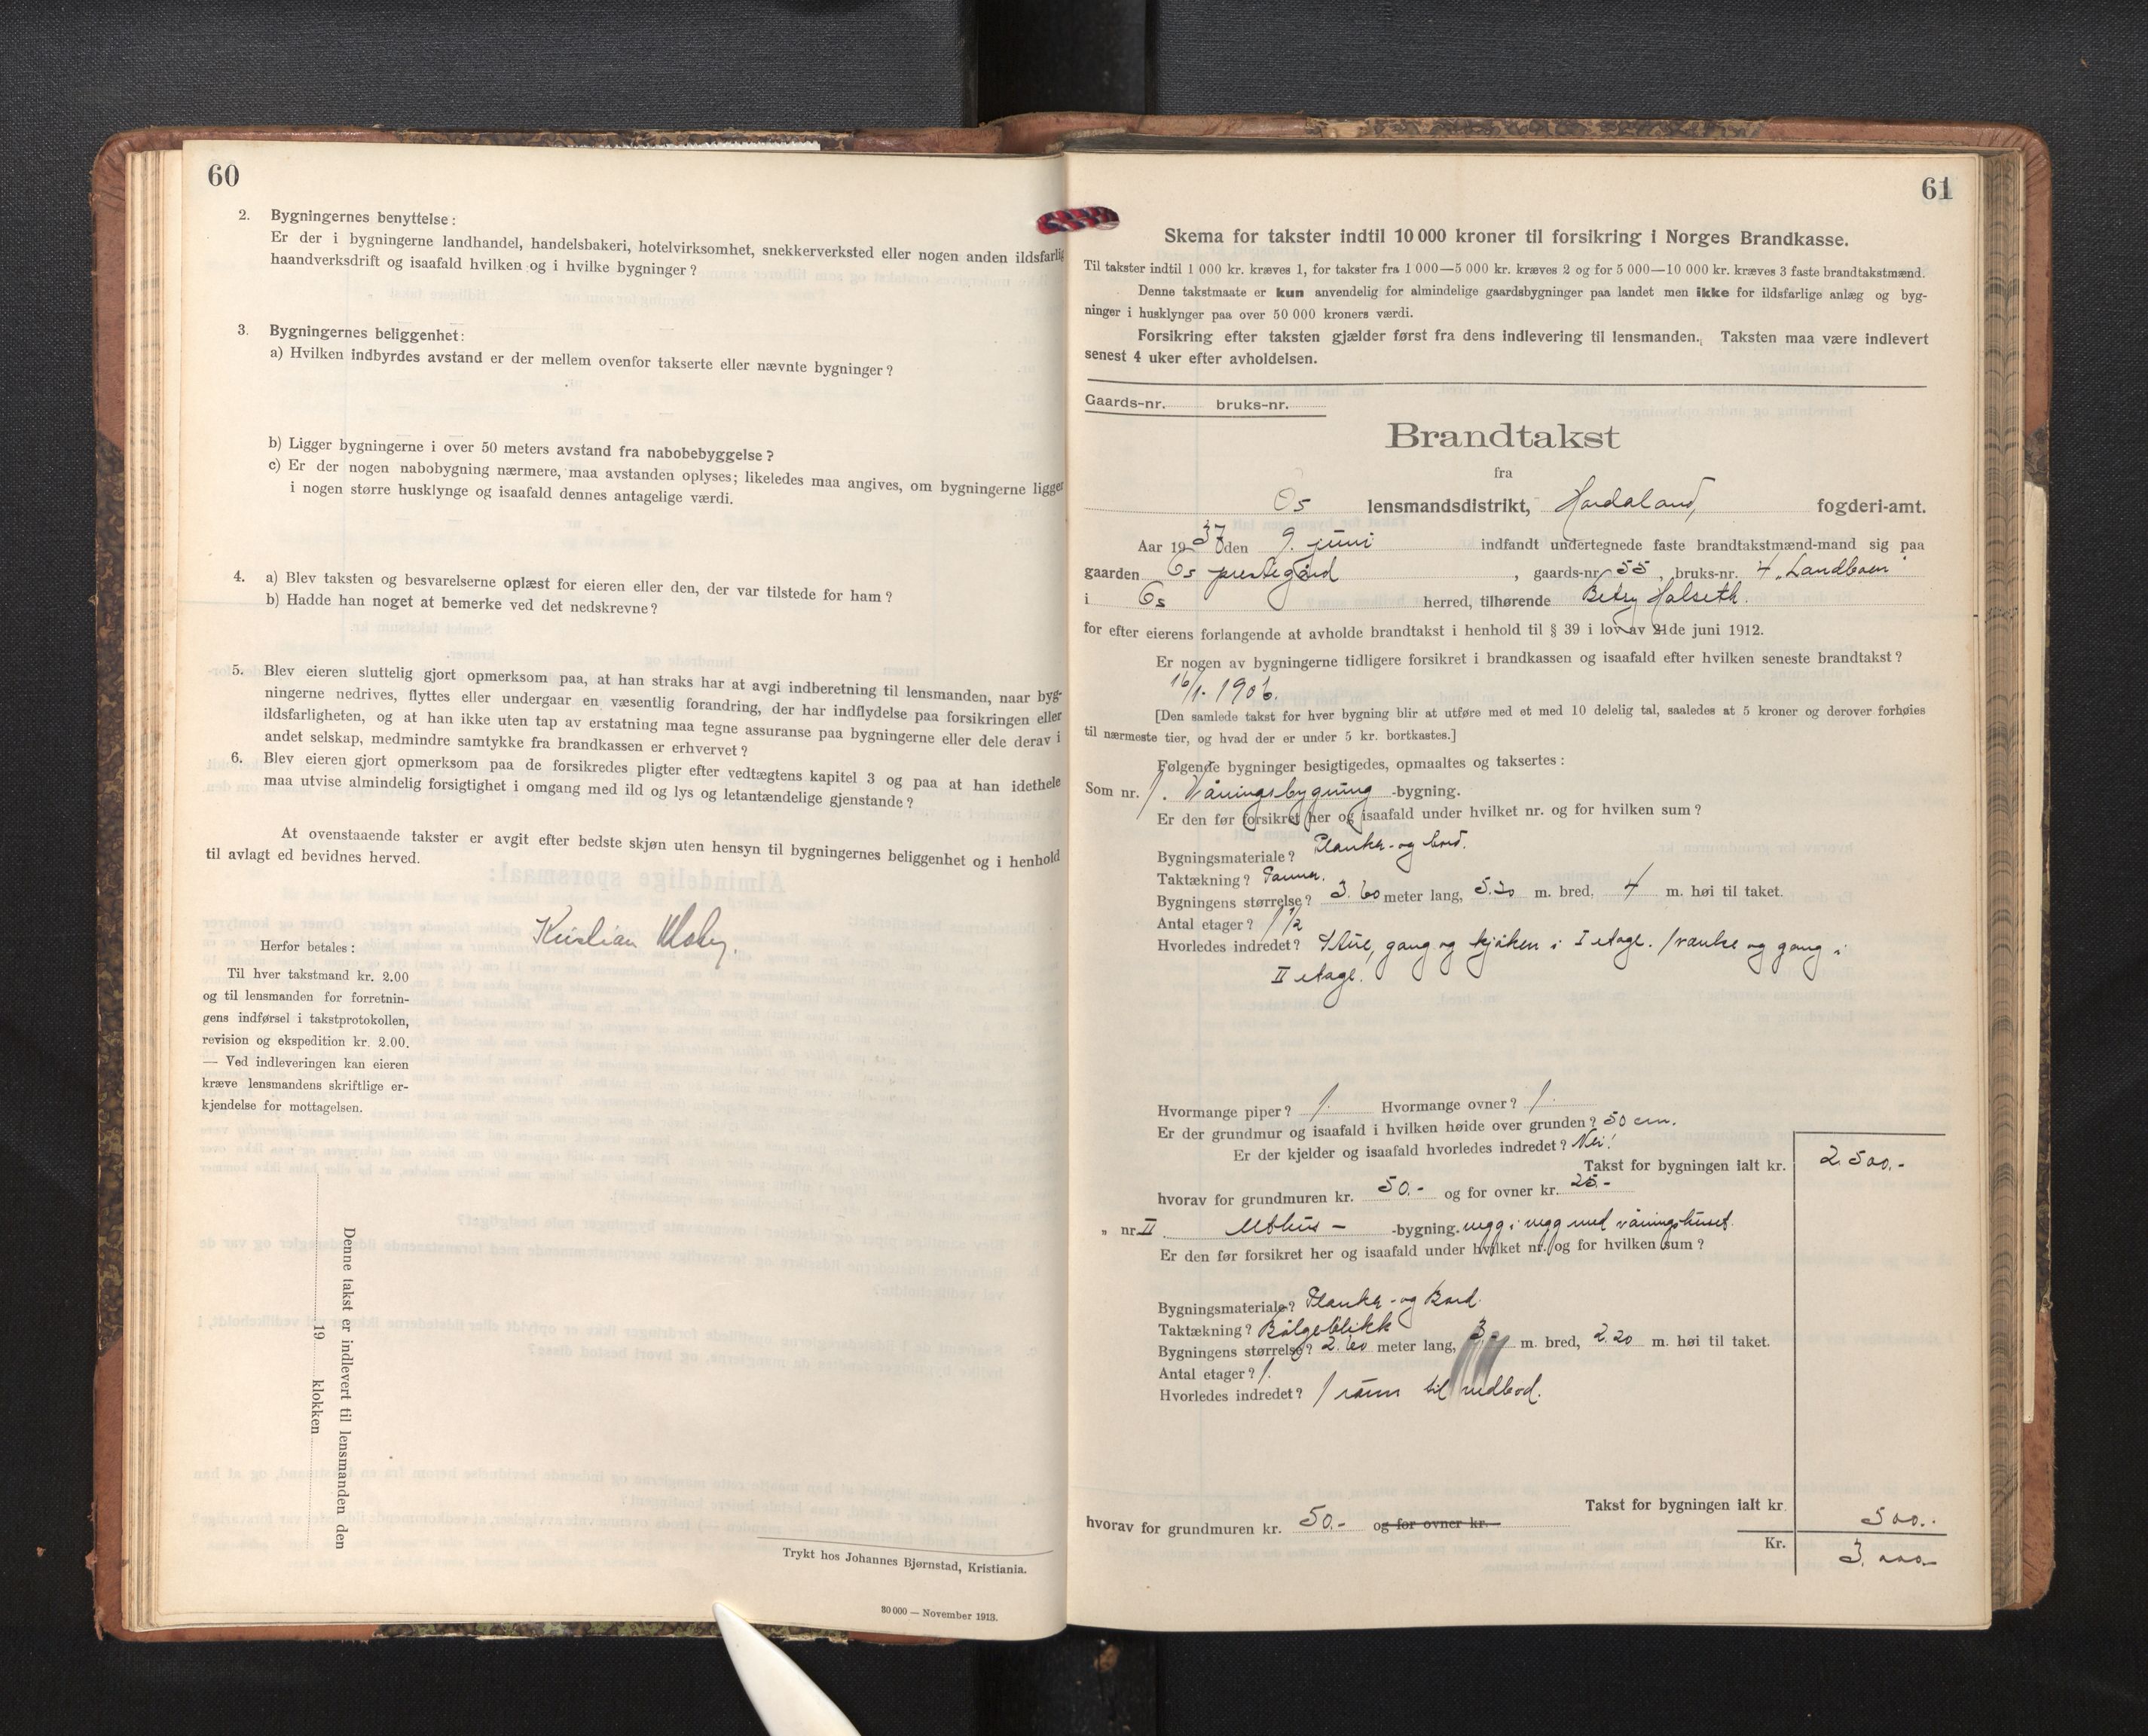 60
2. Bygningernes benyttelse:
Er der i bygningerne landhandel, handelsbakeri, hotelvirksomhet, snekkerverksted eller nogen anden ildsfarlig
haandverksdrift og isaafald hvilken og i hvilke bygninger?
3. Bygningernes beliggenhet:
a) Hvilken indbyrdes avstand er der mellem ovenfor takserte eller nævnte bygninger?
b) Ligger bygningerne i over 50 meters avstand fra nabobebyggelse?
c) Er der nogen nabobygning nærmere, maa avstanden oplyses; likeledes maa angives, om bygningerne ligger
i nogen større husklynge og isaafald dennes antagelige værdi.
4. a) Blev taksten og besvarelserne oplæst for eieren eller den, der var tilstede for ham?
b) Hadde han noget at bemerke ved det nedskrevne?
5. Blev eieren sluttelig gjort opmerksom paa, at han straks har at avgi indberetning til lensmanden, naar byg-
ningerne nedrives, flyttes eller undergaar en væsentlig forandring, der har indflydelse paa forsikringen eller
ildsfarligheten, og at han ikke uten tap av erstatning maa tegne assuranse paa bygningerne eller dele derav i
andet selskap, medmindre samtykke fra brandkassen er erhvervet?
6. Blev eieren gjort opmerksom paa de forsikredes pligter efter vedtægtens kapitel 3 og paa at han idethele
maa utvise almindelig forsigtighet i omgang med ild og lys og letantændelige gjenstande?
At ovenstaaende takster er avgit efter bedste skjøn uten hensyn til bygningernes beliggenhet og i henhold
til avlagt ed bevidnes herved.
Kristian
Herfor betales:
Til hver takstmand kr. 2.00
og til lensmanden for forretnin-
gens indførsel i takstprotokollen,
revision og ekspedition kr. 2.00.
— Ved indleveringen kan eieren
kræve lensmandens skriftlige er-
kjendelse for mottagelsen.
Denne takst er indlevert til lensmanden den
19 klokken
Trykt hos Johannes Bjørnstad, Kristiania.
30 000 — November 1913.
61
Skema for takster indtil 10 000 kroner til forsikring i Norges Brandkasse.
Til takster indtil 1 000 kr. kræves 1, for takster fra 1 000—5 000 kr. kræves 2 og for 5 000—10 000 kr. kræves 3 faste brandtakstmænd.
Denne takstmaate er kun anvendelig for almindelige gaardsbygninger paa landet men ikke for ildsfarlige anlæg og byg-
ninger i husklynger paa over 50 000 kroners værdi.
Forsikring efter taksten gjælder først fra dens indlevering til lensmanden. Taksten maa være indlevert
senest 4 uker efter avholdelsen.
Gaards-nr. bruks-nr.
Brandtakst
fra
Os lensmandsdistrikt, Hordaland, fogderi-amt.
Aar 1937 den 9. juni indfandt undertegnede faste brandtakstmænd-mand sig paa
gaarden Os prestegård, gaards-nr. 55, bruks-nr. 4 „Landboen"
i Os herred, tilhørende Betzy Halseth.
for efter eierens forlangende at avholde brandtakst i henhold til § 39 i lov av 21de juni 1912.
Er nogen av bygningerne tidligere forsikret i brandkassen og isaafald efter hvilken seneste brandtakst?
16/1. 1906.
[Den samlede takst for hver bygning blir at utføre med et med 10 delelig tal, saaledes at 5 kroner og derover forhøies
til nærmeste tier, og hvad der er under 5 kr. bortkastes.]
Følgende bygninger besigtigedes, opmaaltes og taksertes:
Som nr. 1. Våningsbygning -bygning.
Er den før forsikret her og isaafald under hvilket nr. og for hvilken sum?
Bygningsmateriale? Planke- og bord.
Taktækning? Panner.
Bygningens størrelse? 3.60 meter lang, 5.20 m. bred, 4 m. høi til taket.
Antal etager? 1 1/2
Hvorledes indredet? Stue, gang og kjøken i I etage. 1 værelse og gang i
II etage.
Hvormange piper? 1. Hvormange ovner? 1.
Er der grundmur og isaafald i hvilken høide over grunden? 50 cm.
Er der kjelder og isaafald hvorledes indredet? Nei!
Takst for bygningen ialt kr. 2.500.-
hvorav for grundmuren kr. 50.- og for ovner kr. 25.-
„ nr. II Uthus - -bygning. vegg i vegg med våningshuset.
Er den før forsikret her og isaafald under hvilket nr. og for hvilken sum?
Bygningsmateriale? Planke- og Bord.
Taktækning? Bølgeblikk
Bygningens størrelse? 2.60 meter lang, 3 m. bred, 2.20 m. høi til taket.
Antal etager? 1.
Hvorledes indredet? 1 rom til vedbod.
Takst for bygningen ialt kr. 500..
hvorav for grundmuren kr. 50.- og for ovner kr.
Kr. 3.000.-